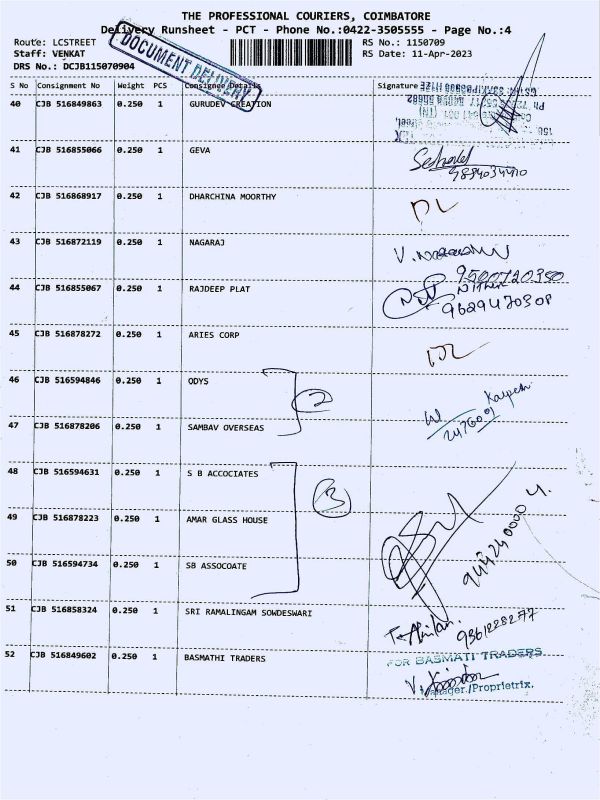 THE PROFESSIONAL COURIERS, COIMBATORE
Delivery Runsheet - PCT - Phone No.:0422-3505555 - Page No.:4
Route: LCSTREET RS No.: 1150709
Staff: VENKAT RS Date: 11-Apr-2023
DRS No.: DCJB115070904
DOCUMENT DELIVERY
S No Consignment No Weight PCS Consignee Details Signature
40 CJB 516849863 0.250 1 GURUDEV CREATION
41 CJB 516855066 0.250 1 GEVA
42 CJB 516868917 0.250 1 DHARCHINA MOORTHY
DL
43 CJB 516872119 0.250 1 NAGARAJ
9500720350
44 CJB 516855067 0.250 1 RAJDEEP PLAT
Nithin
9629470308
45 CJB 516878272 0.250 1 ARIES CORP
46 CJB 516594846 0.250 1 ODYS
2
47 CJB 516878206 0.250 1 SAMBAV OVERSEAS
48 CJB 516594631 0.250 1 S B ACCOCIATES
3
49 CJB 516878223 0.250 1 AMAR GLASS HOUSE
50 CJB 516594734 0.250 1 SB ASSOCOATE
51 CJB 516858324 0.250 1 SRI RAMALINGAM SOWDESWARI
9361228277
52 CJB 516849602 0.250 1 BASMATHI TRADERS
FOR BASMATI TRADERS
Manager./Proprietrix.